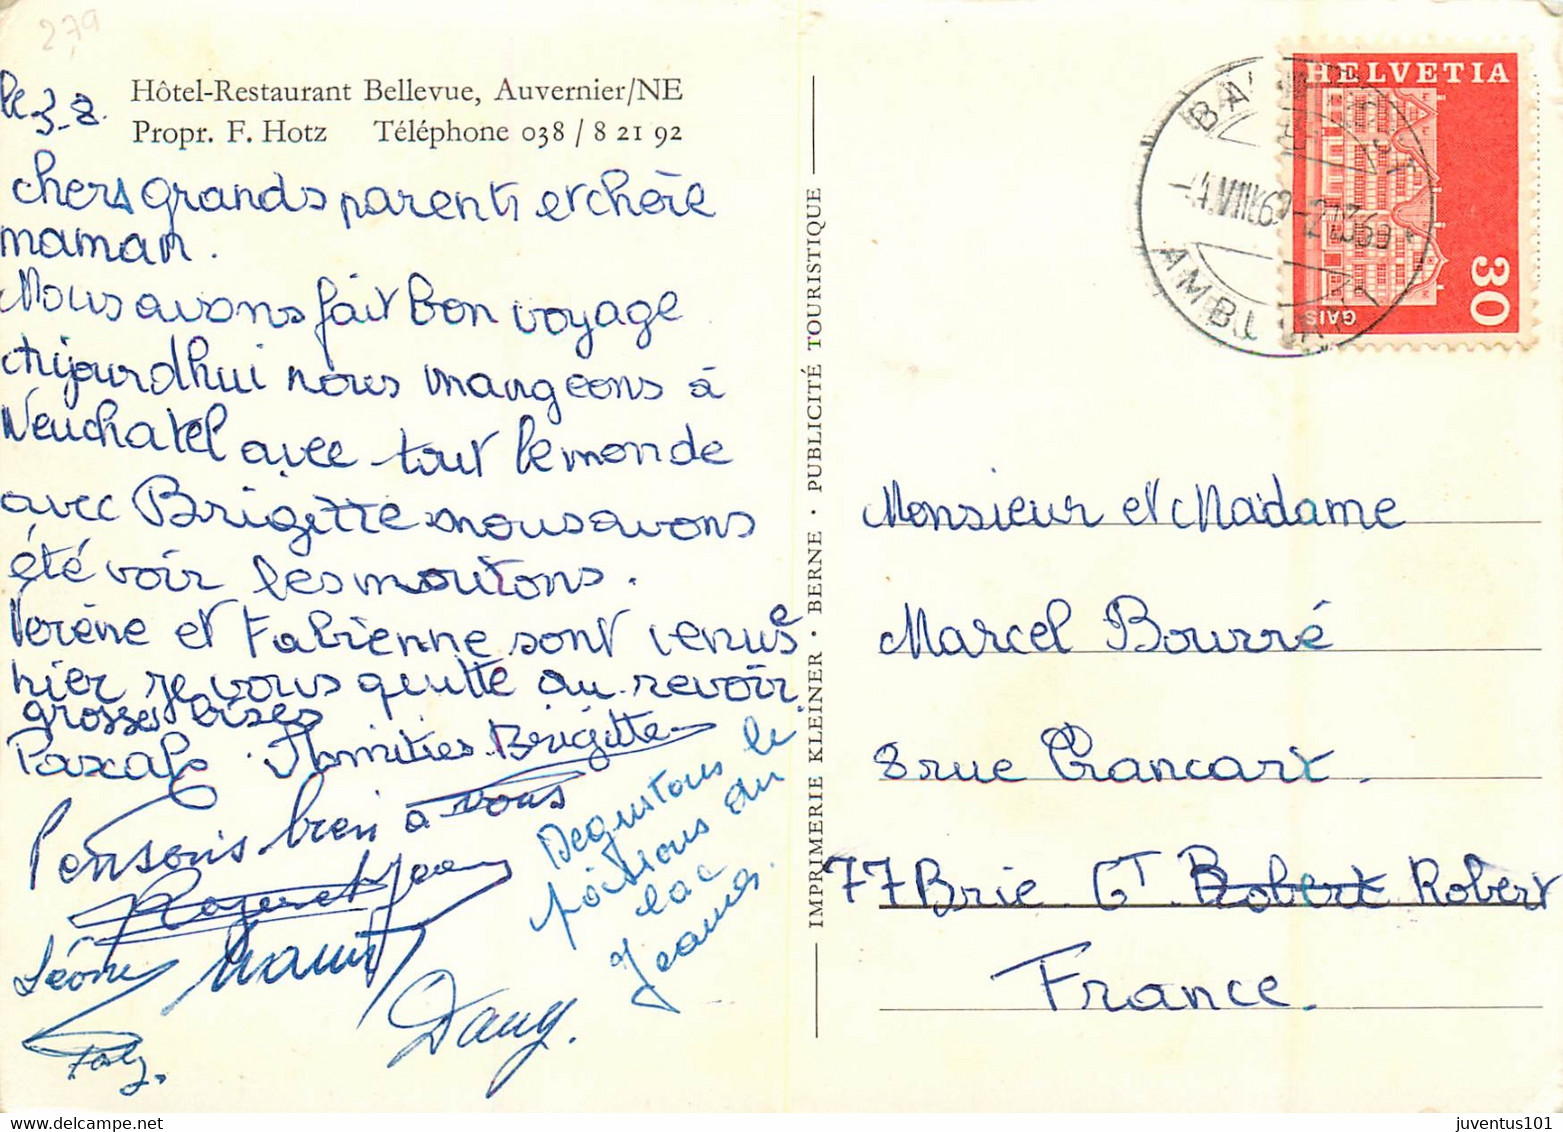 279
Hôtel-Restaurant Bellevue, Auvernier/NE
Propr. F. Hotz Téléphone 038 / 8 21 92
le 3-8.
chers grands parents et chère
maman.
Nous avons fait bon voyage
aujourdhui nous mangeons à
Neuchatel avec tout le monde
avec Brigitte nous avons
été voir les moutons.
Verène et Fabienne sont venue
hier je vous quitte au revoir
grosses bises
Pascale Amitiés Brigitte
Pensons bien à vous
Degustons le
poissons du
lac
Léone
Dany.
IMPRIMERIE KLEINER · BERNE · PUBLICITÉ TOURISTIQUE
HELVETIA
30
GAIS
AMBULANT
Monsieur et Madame
Marcel Bourré
8 rue Francart.
77 Brie Ct Robert Robert
France.
juventus101